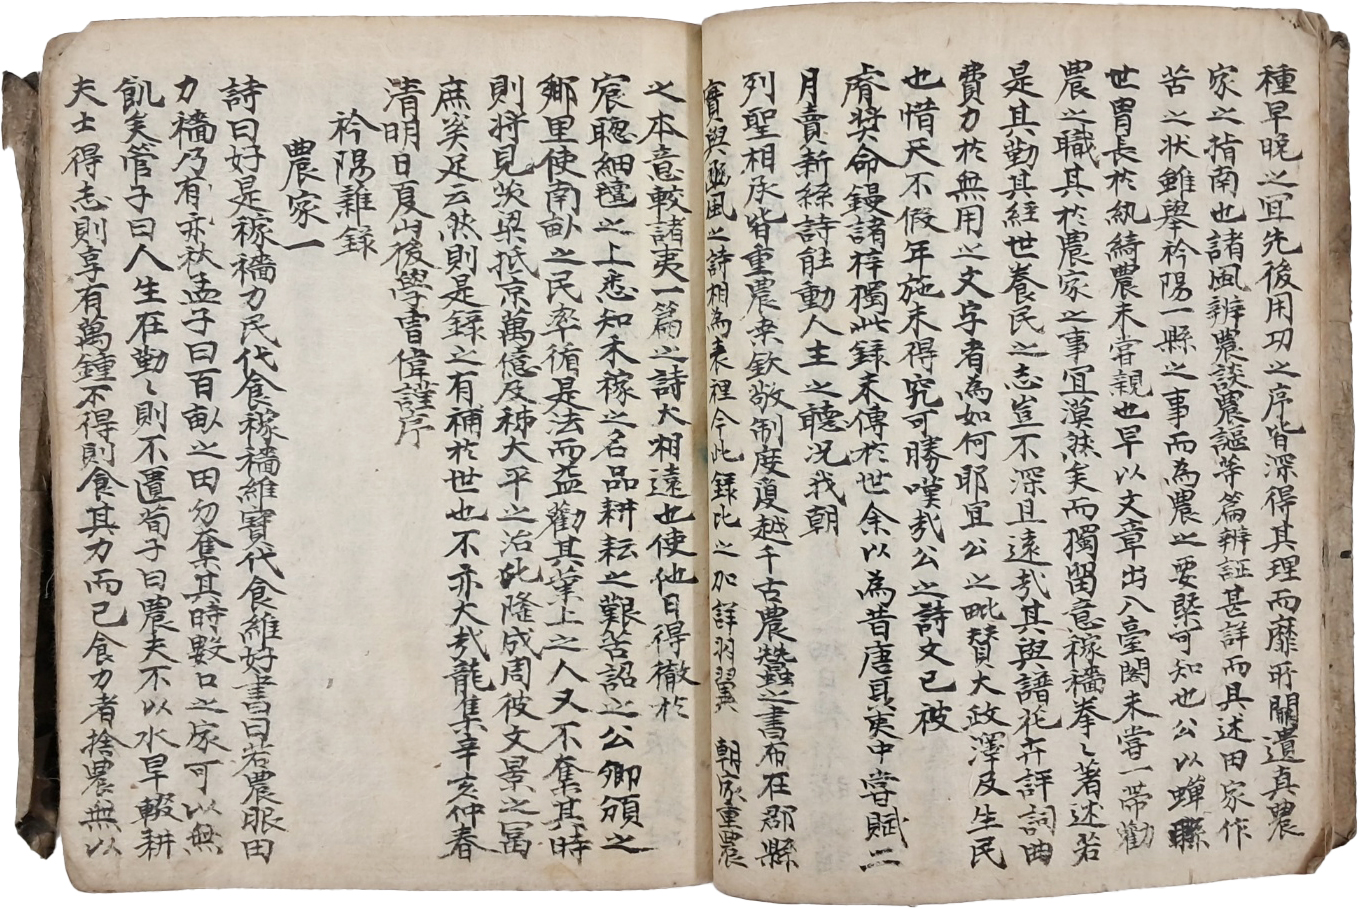 種早晚之宜先後用功之序皆深得其理而靡所闕遺真農
家之指南也諸風辨農談農謳等篇辨証甚詳而具述田家作
苦之狀雖舉衿陽一縣之事而為農之要槩可知也公以蟬聯
世胄長於紈綺農未甞親也早以文章出入臺閣未嘗一帶勸
農之職其於農家之事宜漠然矣而獨留意稼穡拳〻著述若
是其勤其經世養民之志豈不深且遠㢤其與譜花卉評詞曲
費力於無用之文字者為如何耶宜公之毗賛大政澤及生民
也惜天不假年施未得究可勝嘆㢤公之詩文已被
睿奬命鋟諸梓獨此録未傳於世余以為昔唐聶夷中嘗賦二
月賣新絲詩能動人主之聽况我朝
列聖相承皆重農桑欽敬制度敻越千古農蠶之書布在郡縣
實與豳風之詩相為表裡今此録比之加詳羽翼 朝家重農
之本意較諸夷一篇之詩大相遠也使他日得徹於
宸聰細氊之上悉知禾稼之名品耕耘之艱苦詔之公卿頒之
鄉里使南畝之民率循是法而益勸其業上之人又不奪其時
則將見茨梁抵京萬億及秭大平之治比隆成周彼文景之富
庶奚足云然則是録之有補於世也不亦大㢤龍集辛亥仲春
清明日夏山後學曺偉謹序
衿陽雜録
農家一
詩曰好是稼穡力民代食稼穡維寶代食維好書曰若農服田
力穡乃有亦秋孟子曰百畝之田勿奪其時數口之家可以無
飢矣管子曰人生在勤〻則不匱荀子曰農夫不以水旱輟耕
夫士得志則享有萬鍾不得則食其力而已食力者捨農無以